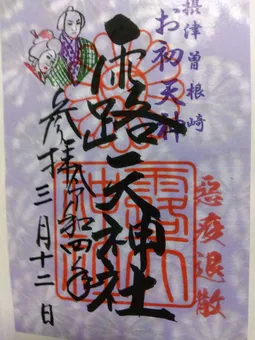 摂津曽根崎
お初天神
悪疫退散
露天神社
参拝
令和四年
三月十二日